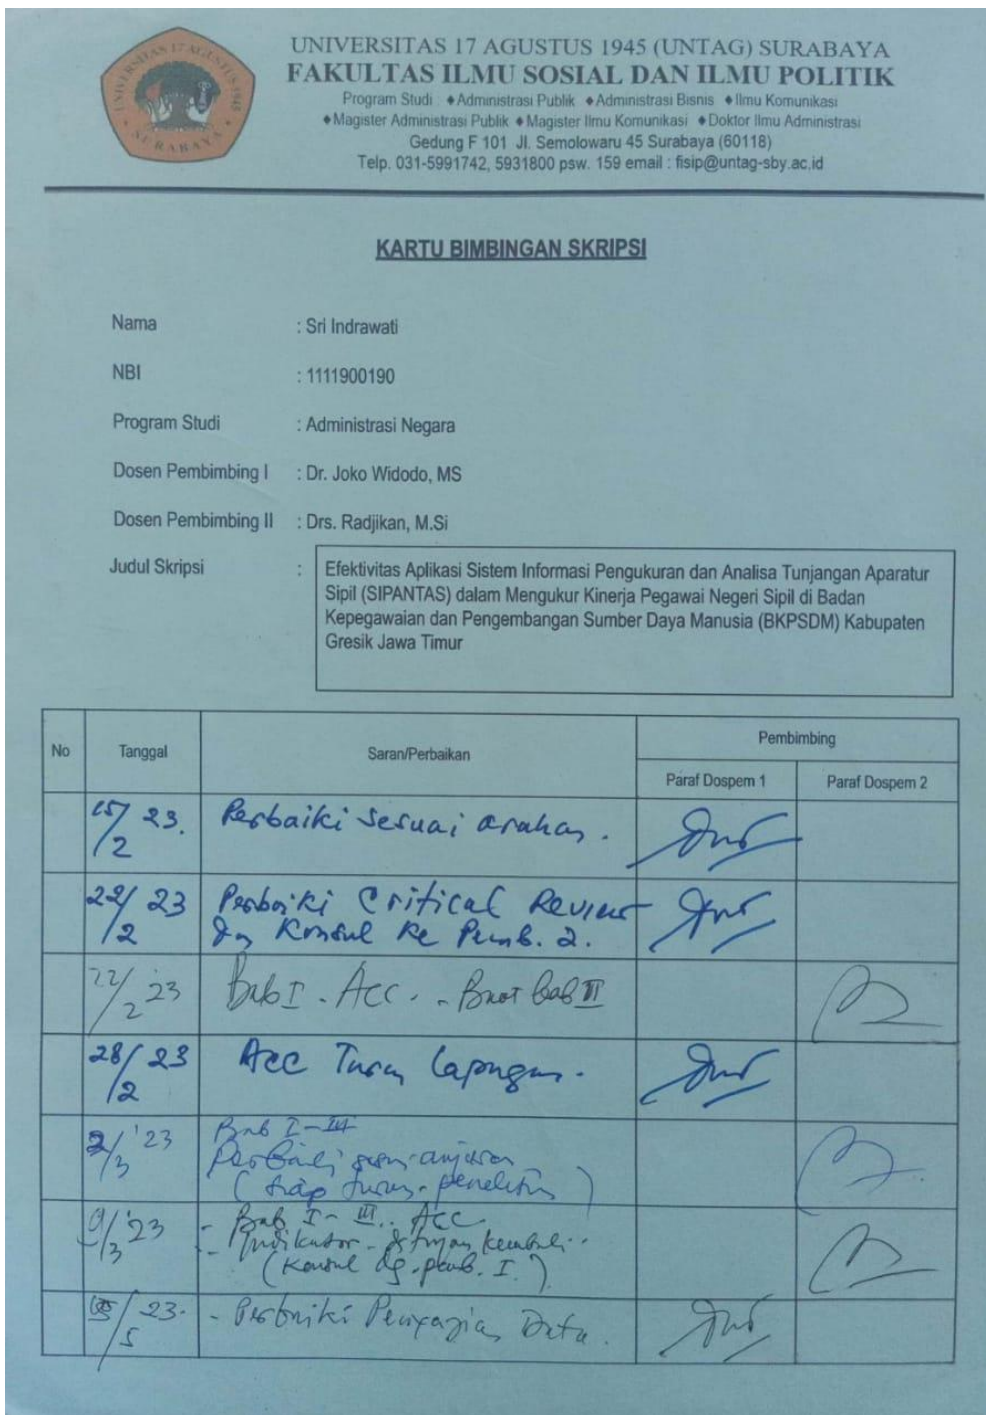 UNIVERSITAS 17 AGUSTUS 1945
SURABAYA
UNIVERSITAS 17 AGUSTUS 1945 (UNTAG) SURABAYA
FAKULTAS ILMU SOSIAL DAN ILMU POLITIK
Program Studi : ♦Administrasi Publik ♦Administrasi Bisnis ♦Ilmu Komunikasi
♦Magister Administrasi Publik ♦Magister Ilmu Komunikasi ♦Doktor Ilmu Administrasi
Gedung F 101 Jl. Semolowaru 45 Surabaya (60118)
Telp. 031-5991742, 5931800 psw. 159 email : fisip@untag-sby.ac.id
KARTU BIMBINGAN SKRIPSI
Nama : Sri Indrawati
NBI : 1111900190
Program Studi : Administrasi Negara
Dosen Pembimbing I : Dr. Joko Widodo, MS
Dosen Pembimbing II : Drs. Radjikan, M.Si
Judul Skripsi : Efektivitas Aplikasi Sistem Informasi Pengukuran dan Analisa Tunjangan Aparatur
Sipil (SIPANTAS) dalam Mengukur Kinerja Pegawai Negeri Sipil di Badan
Kepegawaian dan Pengembangan Sumber Daya Manusia (BKPSDM) Kabupaten
Gresik Jawa Timur
No Tanggal Saran/Perbaikan Pembimbing
Paraf Dospem 1 Paraf Dospem 2
15/2 23. Perbaiki sesuai arahan.
22/2 23 Perbaiki Critical Review
dan Konsul ke Pemb. 2.
22/2 23 Bab I - Acc. - Buat bab II
28/2 23 Acc Turun Lapangan.
2/3 '23 Bab I-III
Perbaiki anjuran
(siap turun penelitian)
9/3 '23 - Bab I - III. Acc
- Indikator kembali..
(Konsul dg. pemb. I.)
/5 23. - Perbaiki Penyajian Data.